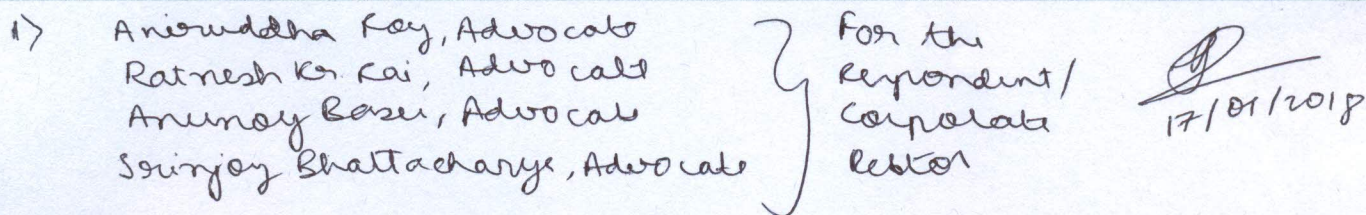 1) Aniruddha Roy, Advocate
Ratnesh Kr. Rai, Advocate
Anunoy Basu, Advocate
Srinjoy Bhattacharya, Advocate
For the
Respondent/
Corporate
Debtor
17/01/2018